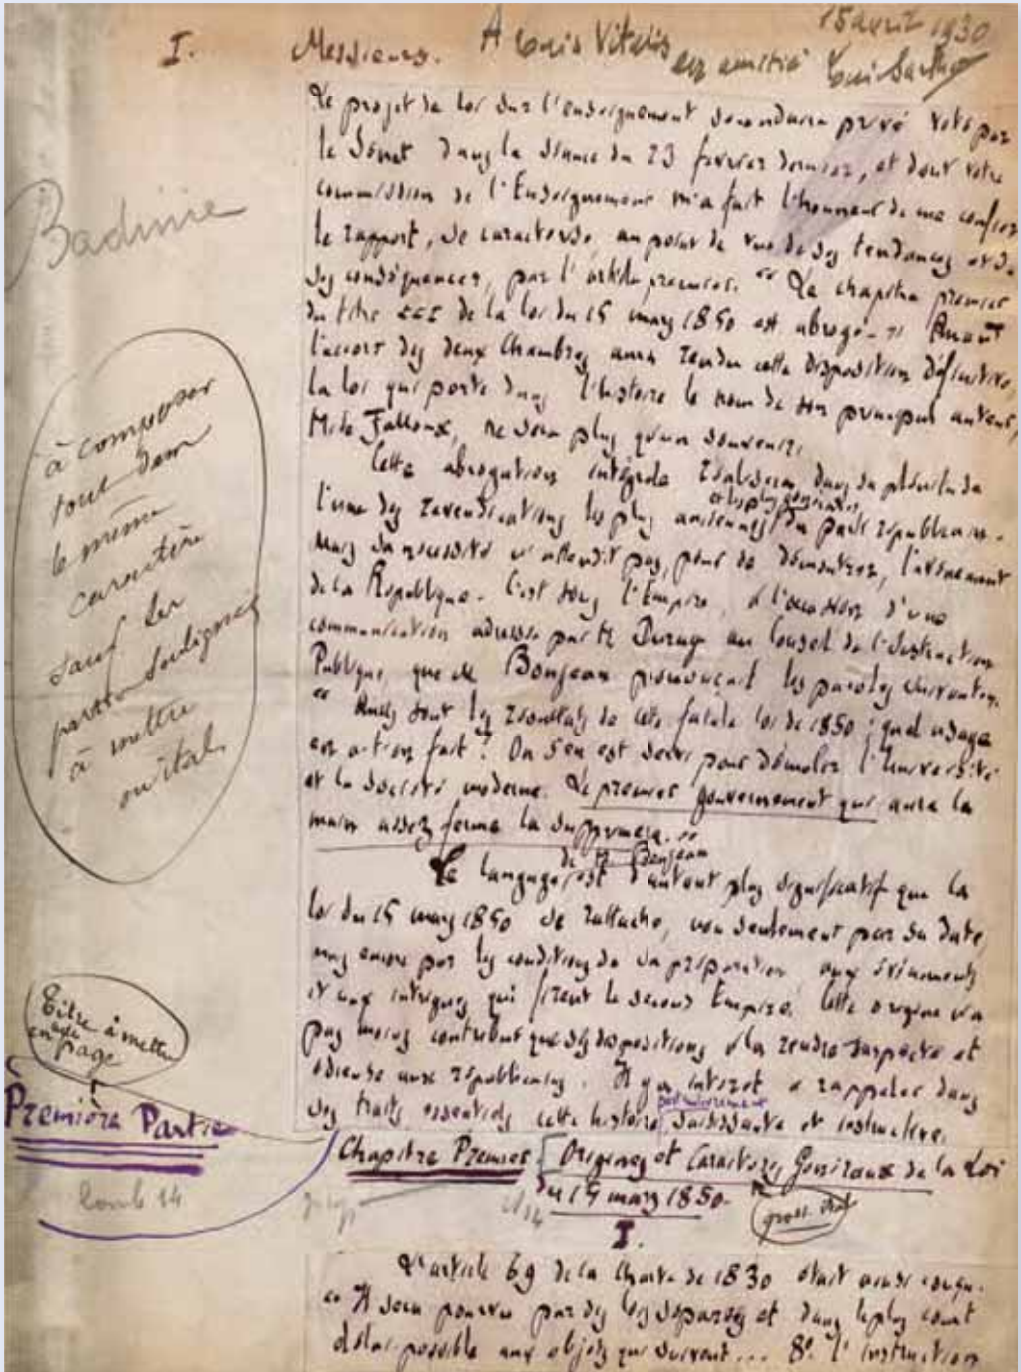 15 avril 1930
I. Messieurs. A Louis Vitalis
en amitié Louis Barthou
Le projet de loi sur l'enseignement secondaire privé voté par
le Sénat dans la séance du 23 février dernier, et dont votre
commission de l'Enseignement m'a fait l'honneur de me confier
le rapport, se caractérise, au point de vue de ses tendances et de
ses conséquences, par l'article premier. "Le chapitre premier
du titre III de la loi du 15 mars 1850 est abrogé." Quand
l'accord des deux Chambres aura rendu cette disposition définitive,
la loi qui porte dans l'histoire le nom de son principal auteur,
M. de Falloux, ne sera plus qu'un souvenir.
Cette abrogation intégrale réalisera dans sa plénitude
et les plus générales
l'une des revendications les plus anciennes du parti républicain.
Mais sa nécessité n'attendit pas, pour se démontrer, l'avènement
de la République. C'est sous l'Empire, à l'occasion d'une
communication adressée par M. Duruy au Conseil de l'Instruction
Publique que M. Bonjean prononçait les paroles suivantes.
" Quels sont les résultats de cette fatale loi de 1850 ; quel usage
en a-t-on fait ? On s'en est servi pour démolir l'Université
et la société moderne. Le premier gouvernement qui aura la
main assez ferme la supprimera."
de M. Bonjean
Ce langage est d'autant plus significatif que la
loi du 15 mars 1850 se rattache, non seulement par sa date,
mais encore par les conditions de sa préparation, aux événements
et aux intrigues qui firent le second Empire. Cette origine n'a
pas moins contribué que ses dispositions à la rendre suspecte et
odieuse aux républicains. Il y a intérêt à rappeler dans
ses traits essentiels cette histoire saisissante et instructive.
Chapitre Premier Origines et Caractères Généraux de la Loi
du 15 mars 1850.
I.
L'article 69 de la Charte de 1830 était ainsi conçu.
" Il sera pourvu par des lois séparées et dans le plus court
délai possible aux objets qui suivent... 8° l'instruction
à composer
tout dans
le même
caractère
sauf les
parties soulignées
à mettre
en ital.
Titre à mettre
en page
Première Partie